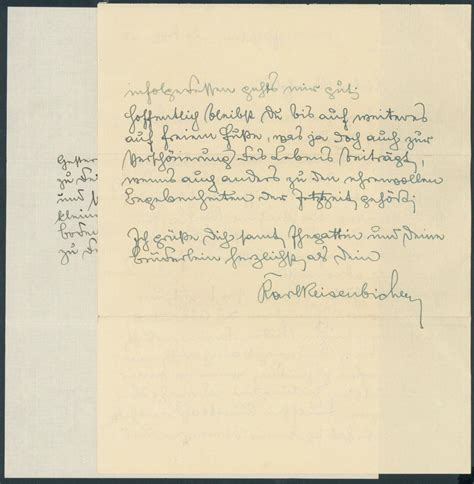 infolgedessen gehts mir gut;
hoffentlich bleibst Du bis auf weiteres
auf freiem Fuße, was ja doch auch zur
Verschönerung des Lebens beiträgt,
wenns auch anders zu den ehrenvollen
Begebenheiten der Jetztzeit gehört;
Ich grüße Dich samt Ehegattin und deine
brüderlein herzlichst als dein
Karl Reisenbichler
zu
und
klein
boden
zu